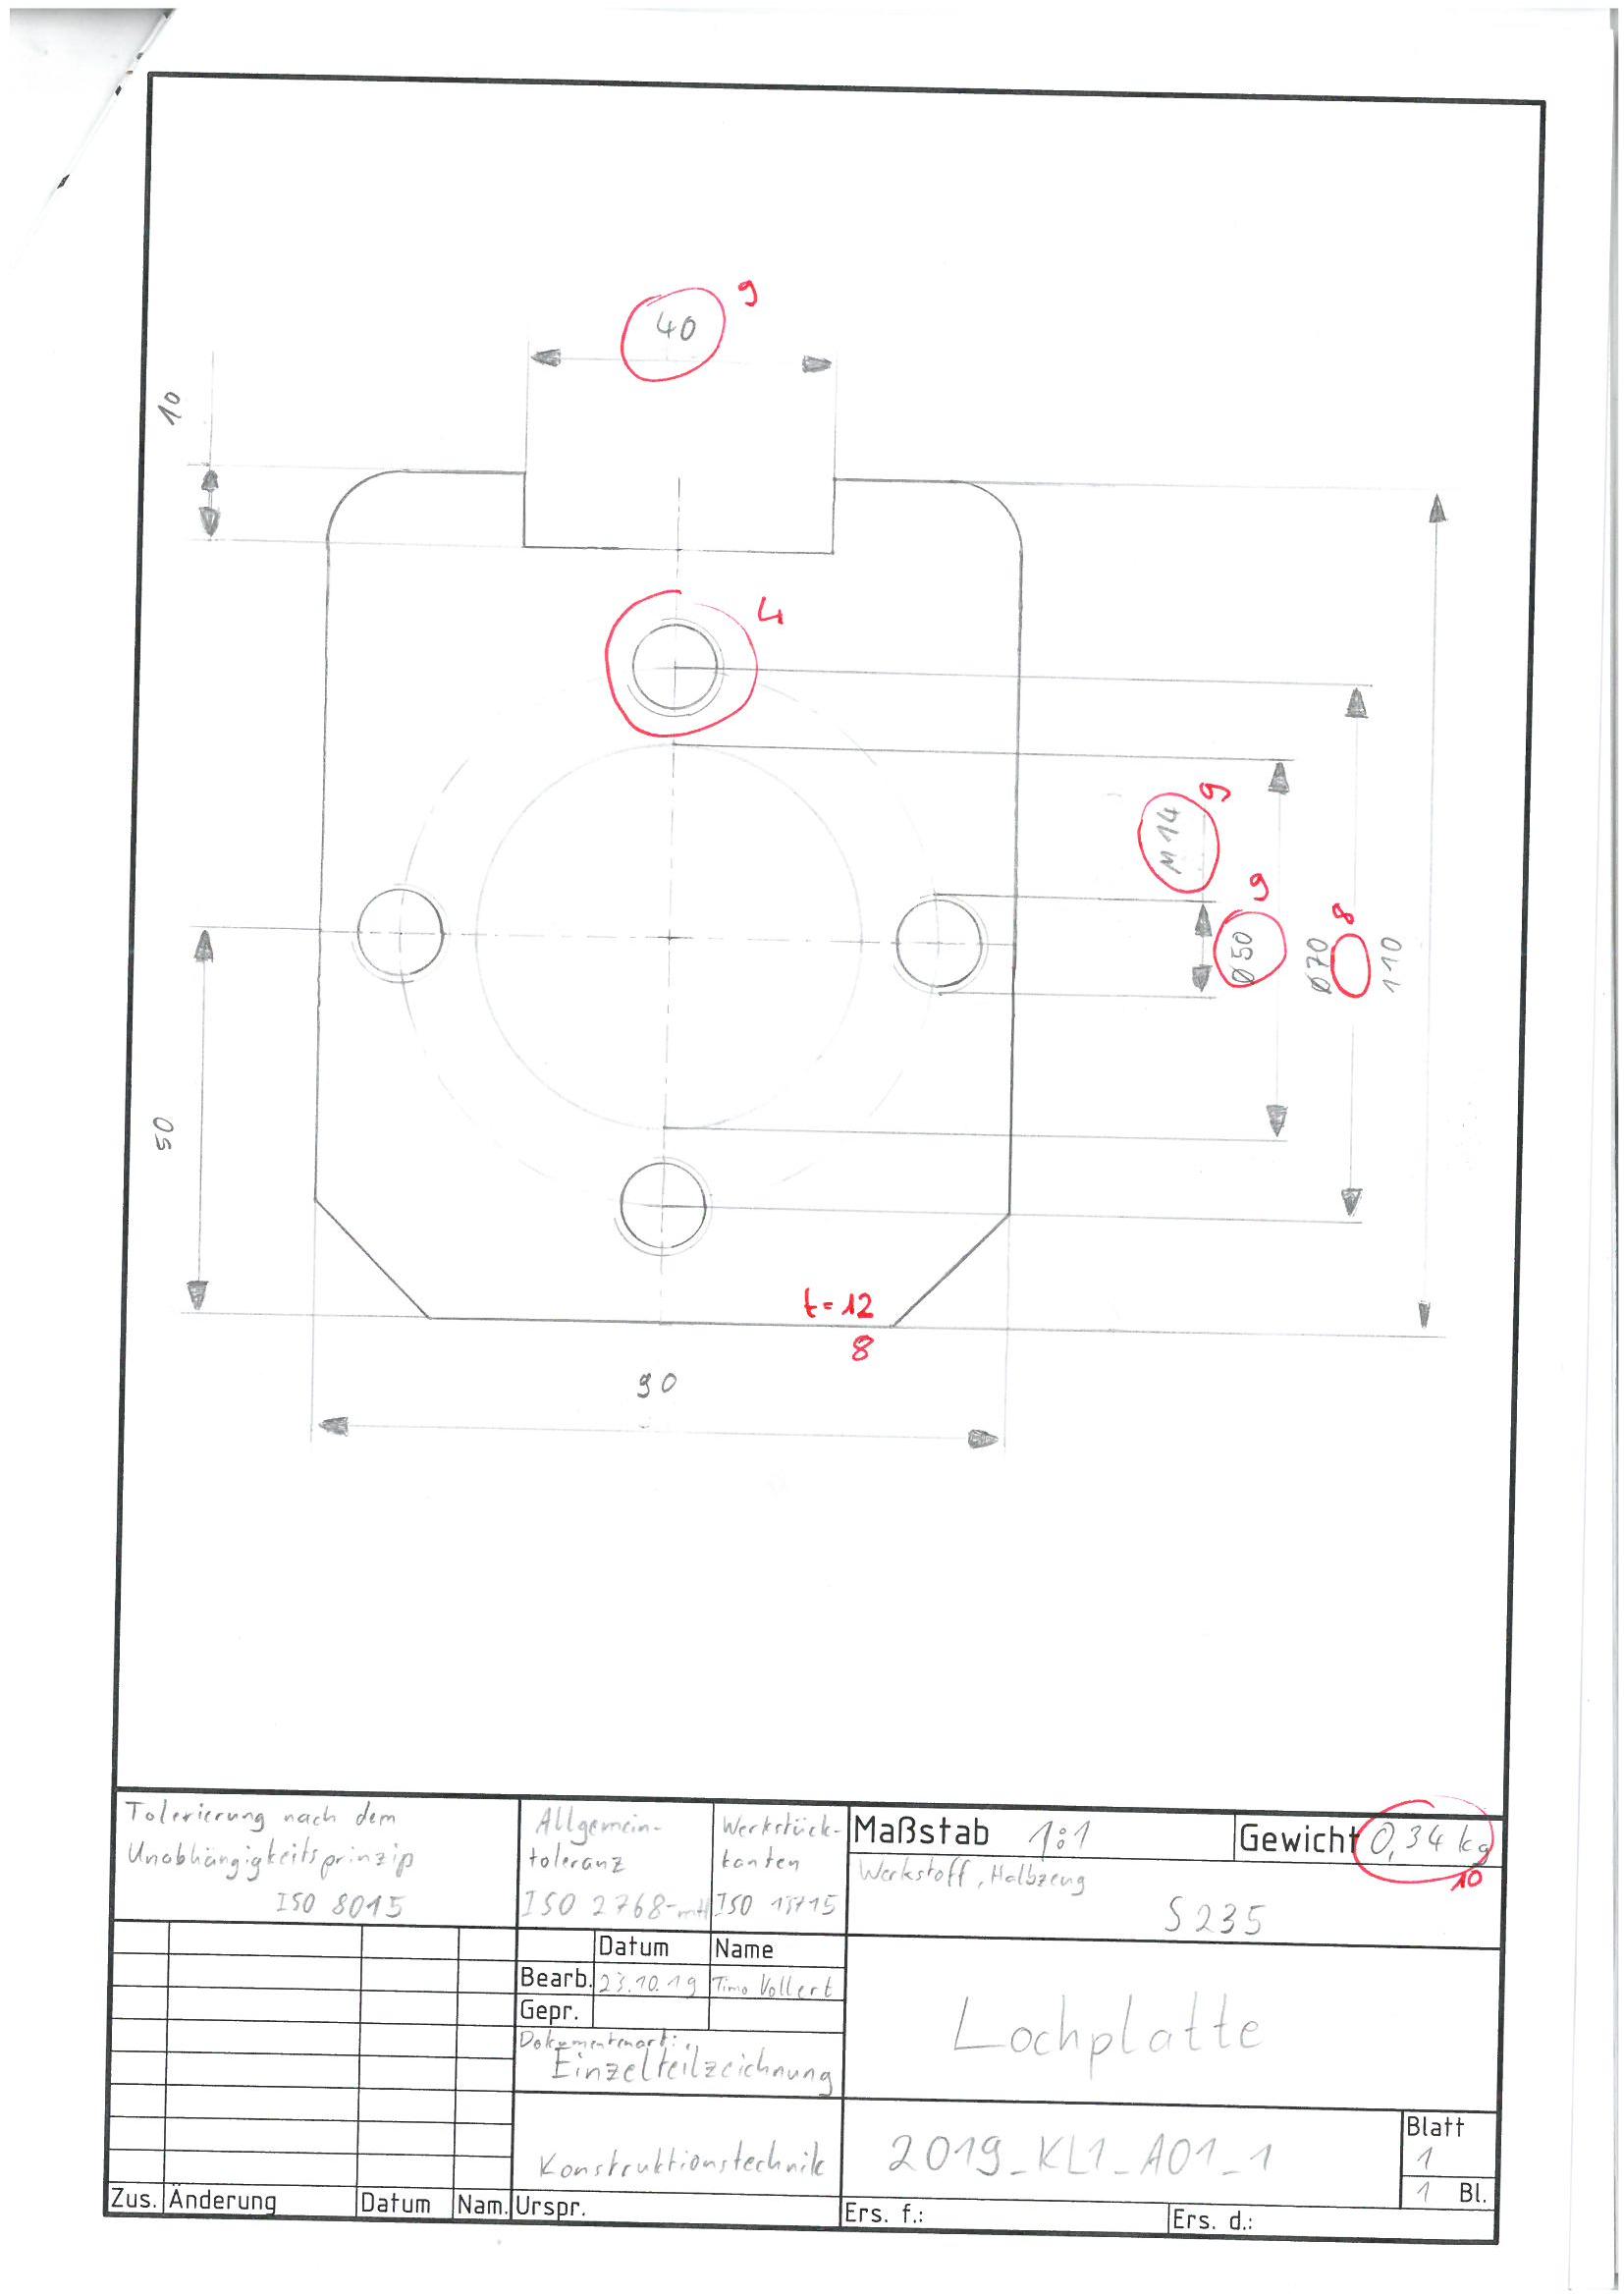 40
9
10
4
M 14
9
9
Ø50
Ø70
8
110
50
t=12
8
90
Tolerierung nach dem
Unabhängigkeitsprinzip
ISO 8015
Allgemein-
toleranz
ISO 2768-mH
Werkstück-
kanten
ISO 13715
Maßstab 1:1
Gewicht 0,34 kg
10
Werkstoff, Halbzeug
S 235
Datum Name
Bearb. 23.10.19 Timo Vollert
Gepr.
Dokumentenart:
Einzelteilzeichnung
Lochplatte
Konstruktionstechnik
2019_KL1_A01_1
Blatt
1
1 Bl.
Zus. Änderung Datum Nam. Urspr. Ers. f.: Ers. d.: